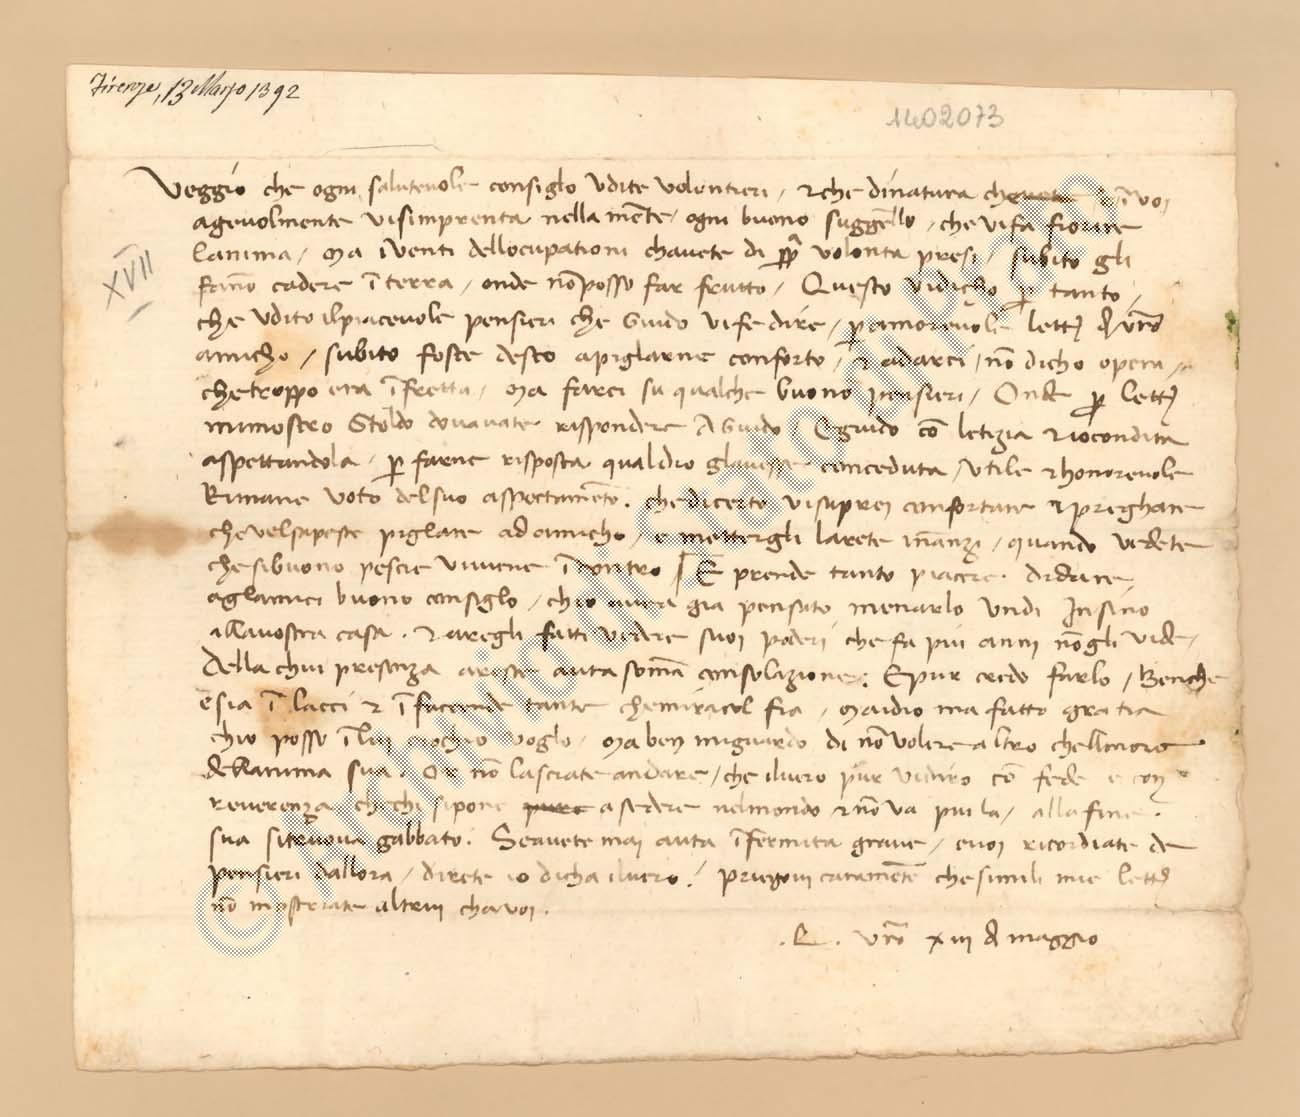 Firenze, 13 Marzo 1392
1402073
XVII
Veggio che ogni salutevole consiglo udite volontieri / & che dinatura chavete è ī voi
agevolmente visimprenta nella mēte / ogni buono suggello / che vi fa fiorire
lanima / Ma i venti dellocupationi chavete di ꝓpa volonta presi / subito gli
fanno cadere ī terra / onde nō posso far frutto / Questo vi dicho ꝑ tanto /
che udito il piacevole pensieri che Guido vi fe dire / ꝑ amorevole lettā d vrō
amicho / subito foste desto a piglarne conforto / & a darci / nō dicho opera /
che troppo era ī fretta / Ma farci su qualche buono pensieri / Onde ꝑ lettā
mi mostro Stoldo dovavate rispondere A Guido / E guido cō letizia & iocondita
aspettandola / ꝑ farne risposta qual dio glavesse conceduta / utile & honorevole
Rimane voto del suo aspectamēto. che di certo vi saprei confortare & preghare
che vel sapeste piglare ad amicho / e mettergli larete inanzi / quando vedete
che si buono pescie vi viene ī contro / E prende tanto piacere . di dare
aglamici buono consiglo / chio avea gia pensato menarlo un di Insino
alla vostra casa . & aregli fatti vedere suoi poderi che fa piu anni nō gli vide /
Della chui presenza areste auta somā consolazione. E pur credo farlo / Benche
e sia ī lacci & ī facciende tante che miracol fia / Ma idio ma fatto gratia
chio posso ī lui ciochio voglo / Ma ben mi guardo di nō volere altro chellonore
dellanima sua . Or nō lasciate andare / che il vero pur vi diro cō fede e con
reverenza che chi si pone pure a sedere nel mondo & nō va piu la / alla fine .
sua si truova gabbato . Se avete mai auta ī fermita grave / e voi ricordiate de
pensieri dallora / direte io dicha il vero / Priegovi caramēte che simili mie lettē
nō mostriate altrui cha voi .
. L . vrō xiii d maggio